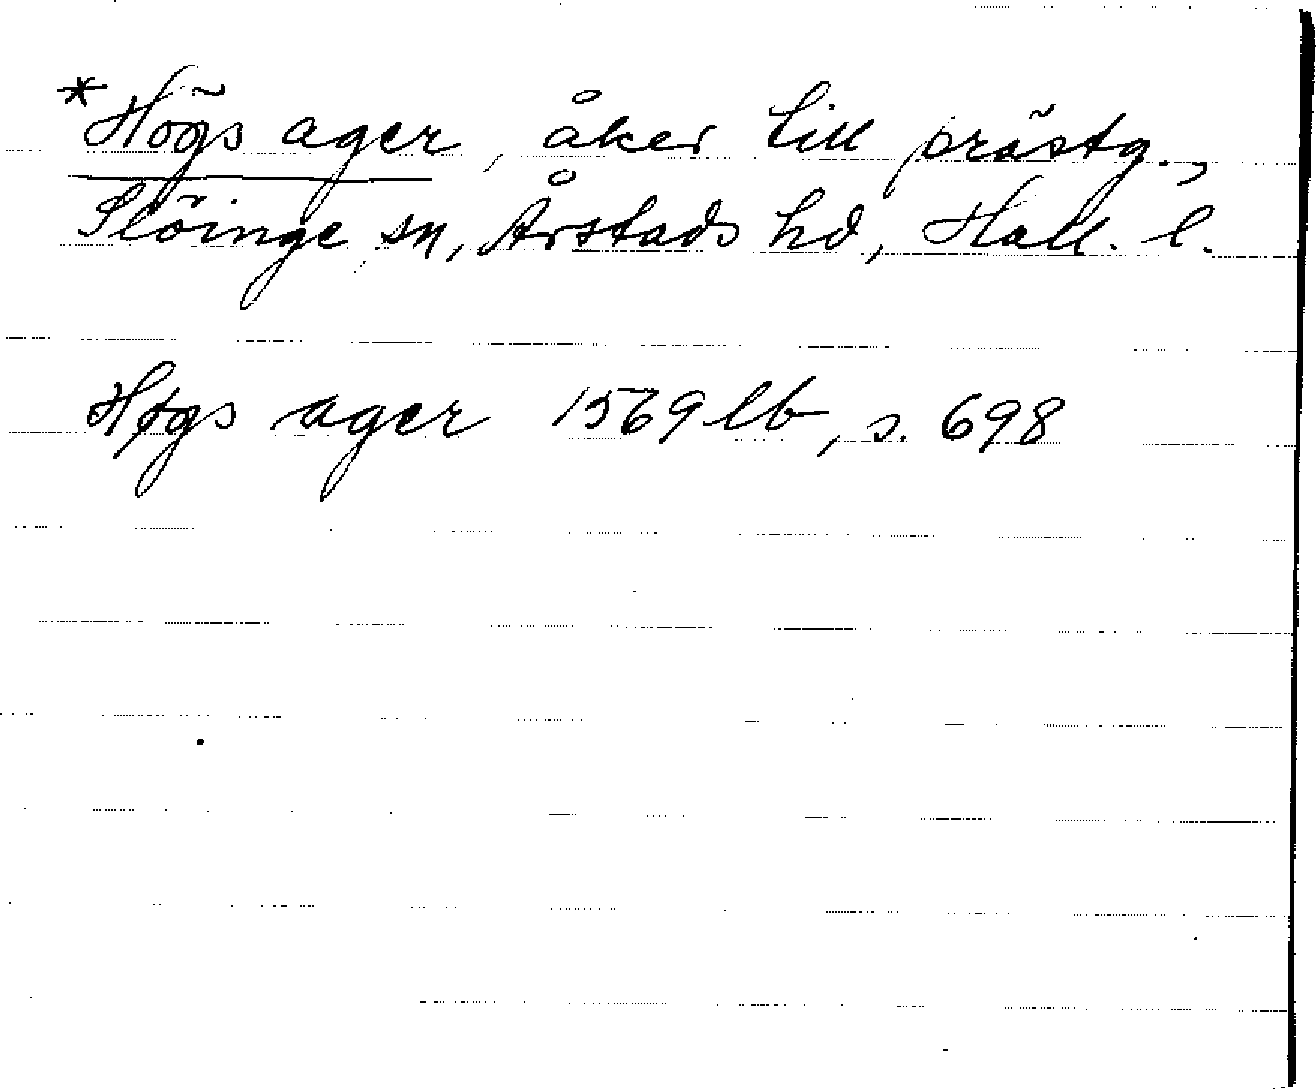 *Högs ager, åker till prästg.,
Slöinge sn, Årstads hd, Hall. l.
Høgs ager 1569 lb, s. 698